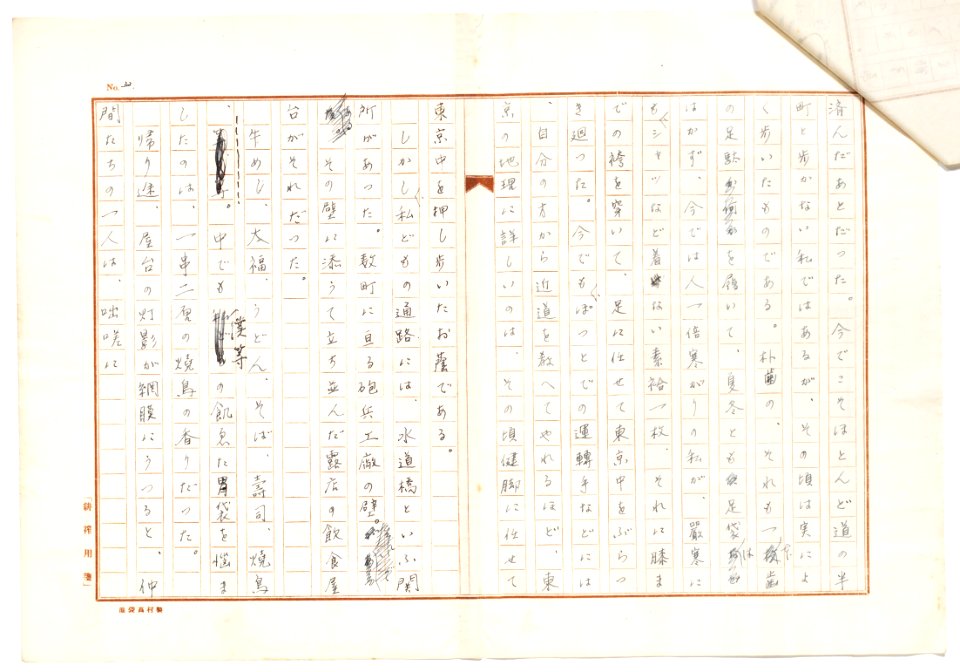 済んだあとだった。今でこそほとんど道の半
町と歩かない私ではあるが、その頃は実によ
く歩いたものである。朴歯の、それも一歯
の足駄を履いて、夏冬とも足袋は
はかず、今では人一倍寒がりの私が、厳寒に
もシャツなど着ない素袷一枚、それに膝ま
での袴を穿いて、足に任せて東京中をぶらつ
き廻った。今でもぽっとでの運轉手などには
、自分の方から近道を教へてやれるほど、東
京の地理に詳しいのは、その頃健脚に任せて
東京中を押し歩いたお蔭である。
しかし私どもの通路には、水道橋といふ関
所があった。数町に亘る砲兵工廠の壁。
その壁に添うて立ち並んだ露店の飲食屋
台がそれだった。
牛めし、大福、うどん、そば、壽司、焼鳥
、。中でも僕等の飢えた胃袋を悩ま
したのは、一串二厘の焼鳥の香りだった。
帰り途、屋台の灯影が網膜にうつると、仲
間たちの一人は、咄嗟に
No.
「納澤用箋」
池袋高村製